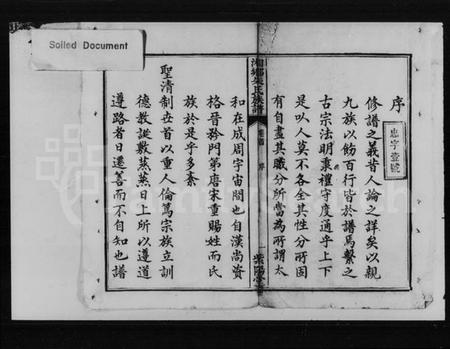 Soiled Document
序
忠字壹號
修譜之義昔人論之詳矣以親
九族以飭百行皆於譜焉繫之
古宗法明喪禮守度通乎上下
是以人莫不各全其性分所固
有自盡其職分所當為所謂太
湘鄉朱氏族譜
序
一
紫陽堂
和在成周宇宙間也自漢尚資
格晉矜門第唐宋重賜姓而氏
族於是乎多紊
聖清制世首以重人倫篤宗族立訓
德教誕敷蒸蒸日上所以遵道
遵路者日遷善而不自知也譜